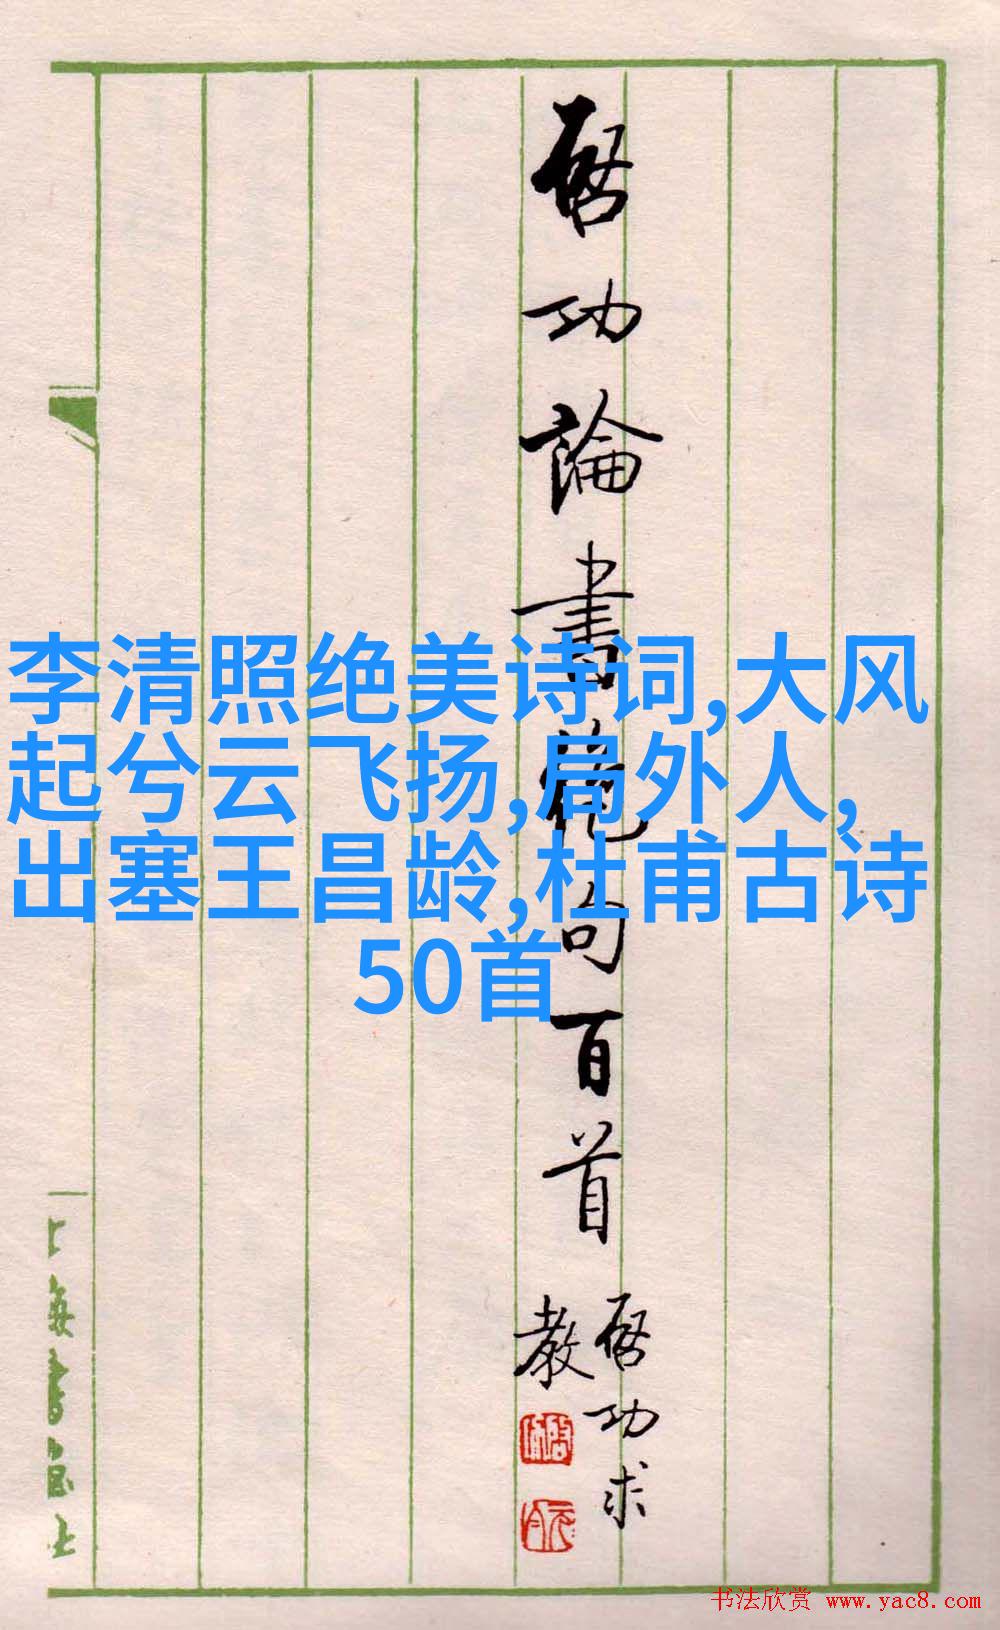 启功論書絶句百首
启功求
教
李清照绝美诗词,大风
起兮云飞扬,局外人,
出塞王昌龄,杜甫古诗
50首
上海書画社
书法欣赏 www.yac8.com